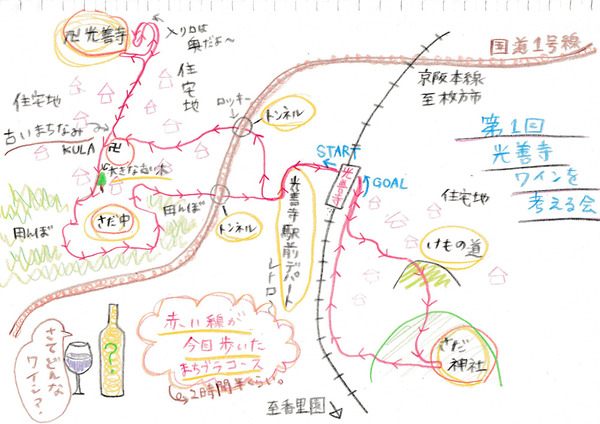 卍光善寺
入り口は
奥だよ〜
住宅地
国道1号線
京阪本線
至枚方市
第1回
光善寺
ワインを
考える会
住宅地
古いまちなみ
ロッキー
トンネル
KULA
卍
大きな古い木
START
光善寺
GOAL
住宅地
さだ中
田んぼ
田んぼ
トンネル
光善寺駅前デパート
レトロ〜
けもの道
さだ
神社
赤い線が
今日歩いた
まちブラコース
2時間半くらい。
さてどんな
ワイン?
?
至香里園